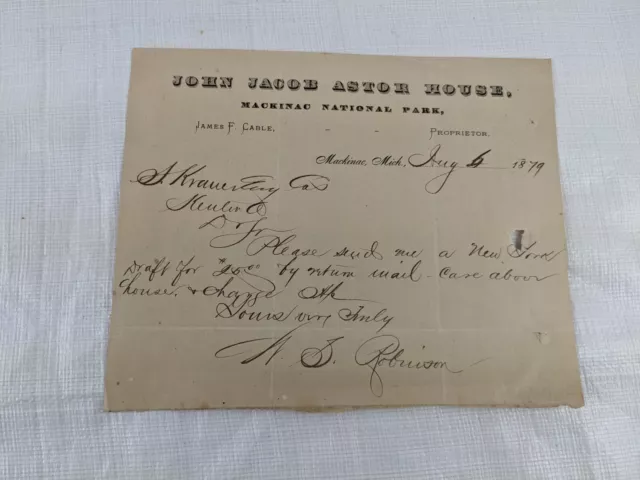 JOHN JACOB ASTOR HOUSE,
MACKINAC NATIONAL PARK,
JAMES F. CABLE, - - PROPRIETOR.
Mackinac, Mich. Aug 4 1879
Co
Kenton O
Dr Sir
Please send me a New York
Draft for by return mail - Care above
house, & charge
Yours very Truly
W. S. Robinson